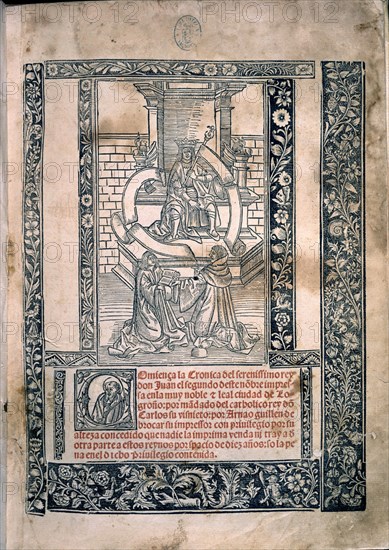 Comiença la Cronica del serenissimo rey
don Juan el segundo deste nõbre impres
sa enla muy noble & leal ciudad de Lo
groño: por mãdado del catholico rey dõ
Carlos su visnieto: por Arnao guillen de
brocar su impressor con privilegio por su
alteza concedido que nadie la imprima venda ni trayga d
otra parte a estos reynos por espacio de diez años: so la pe
na enel dicho privilegio contenida.
PHOTO12